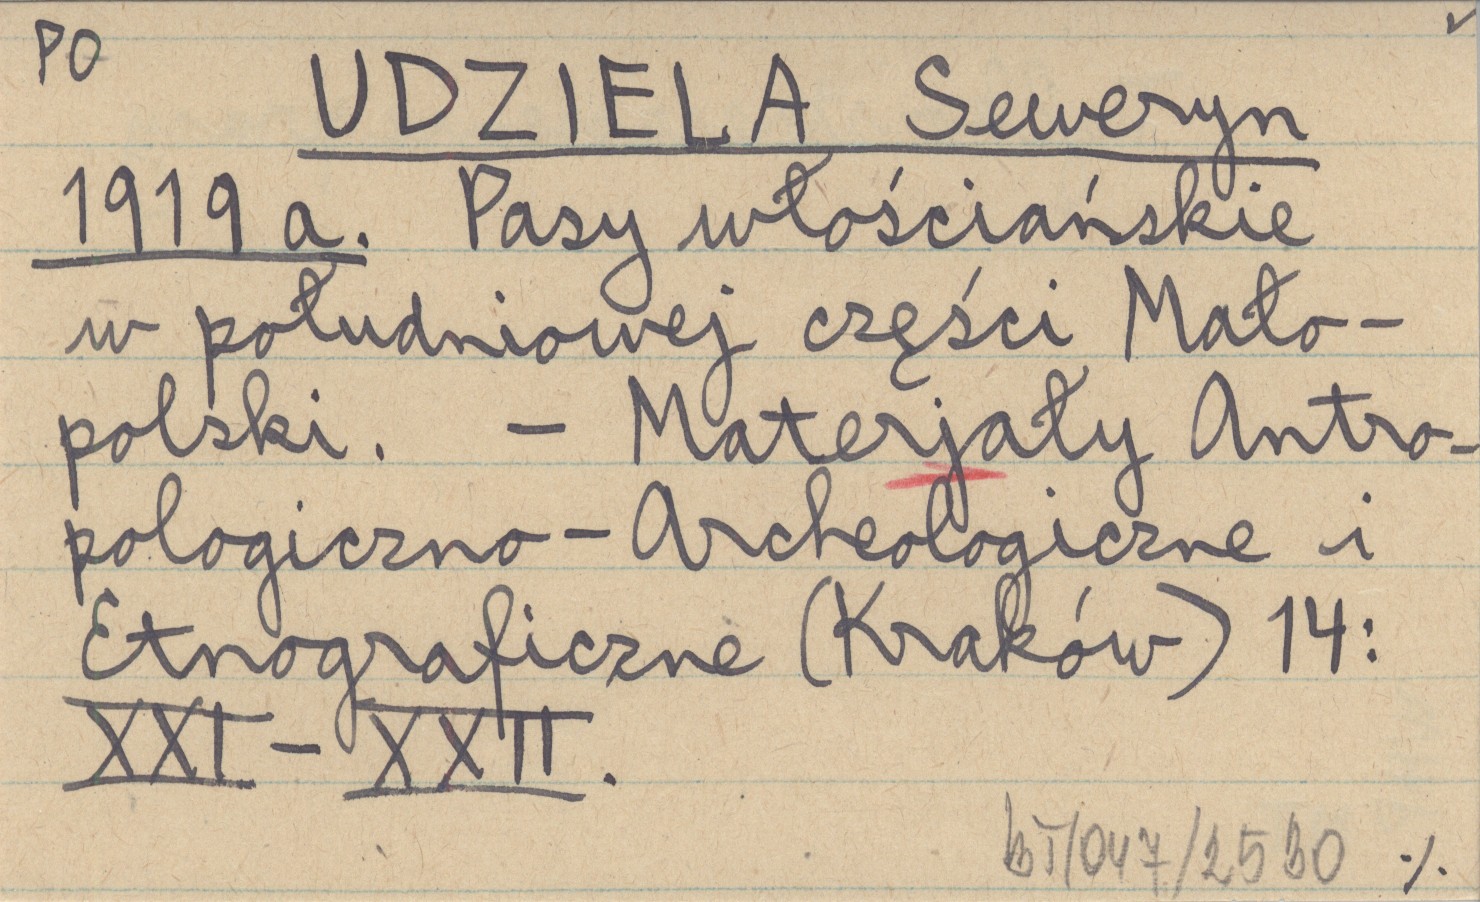 PO
UDZIELA Seweryn
1919 a. Pasy włościańskie
w południowej części Mało-
polski. - Materjały Antro-
pologiczno-Archeologiczne i
Etnograficzne (Kraków) 14:
XXI - XXII.
BT/047/2530 ·/.